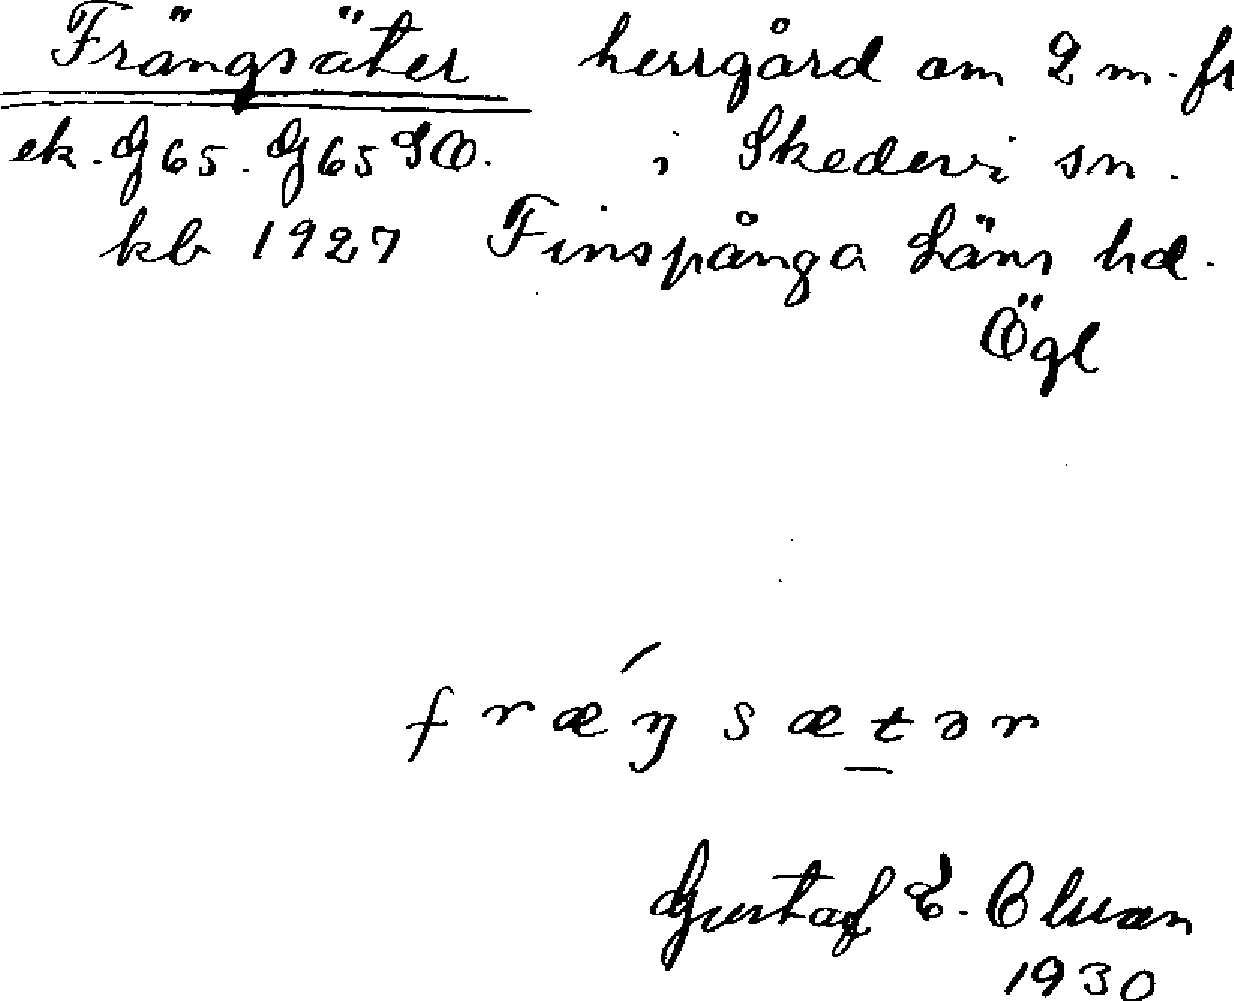 Frängsäter herrgård om 2 m. fr
ek. G 65. G 65 SO. i Skedevi sn.
kb 1927 Finspånga Läns hd.
Ögl
fræŋsætər
Gustaf E.
1930